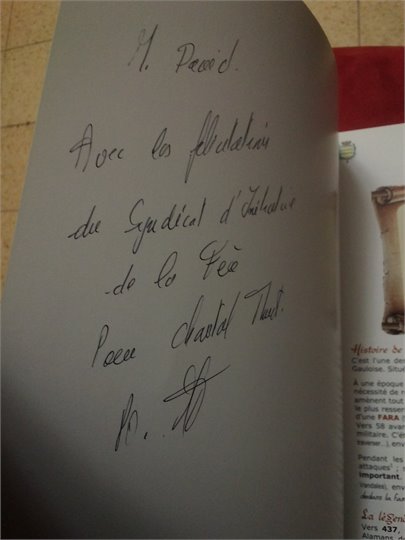 M. David.
Avec les félicitations
du Syndicat d'Initiative
de la Fère
Pour Chantal
Histoire de
C'est l'une des
Gauloise. Situé
A une époque
nécessité de
amènent tout
le plus
d'une FARA
Vers 58 avan
militaire. C'es
traverser..) env
Pendant les
attaques
important.
Vandales), env
La légen
Vers 437,
Alamans de